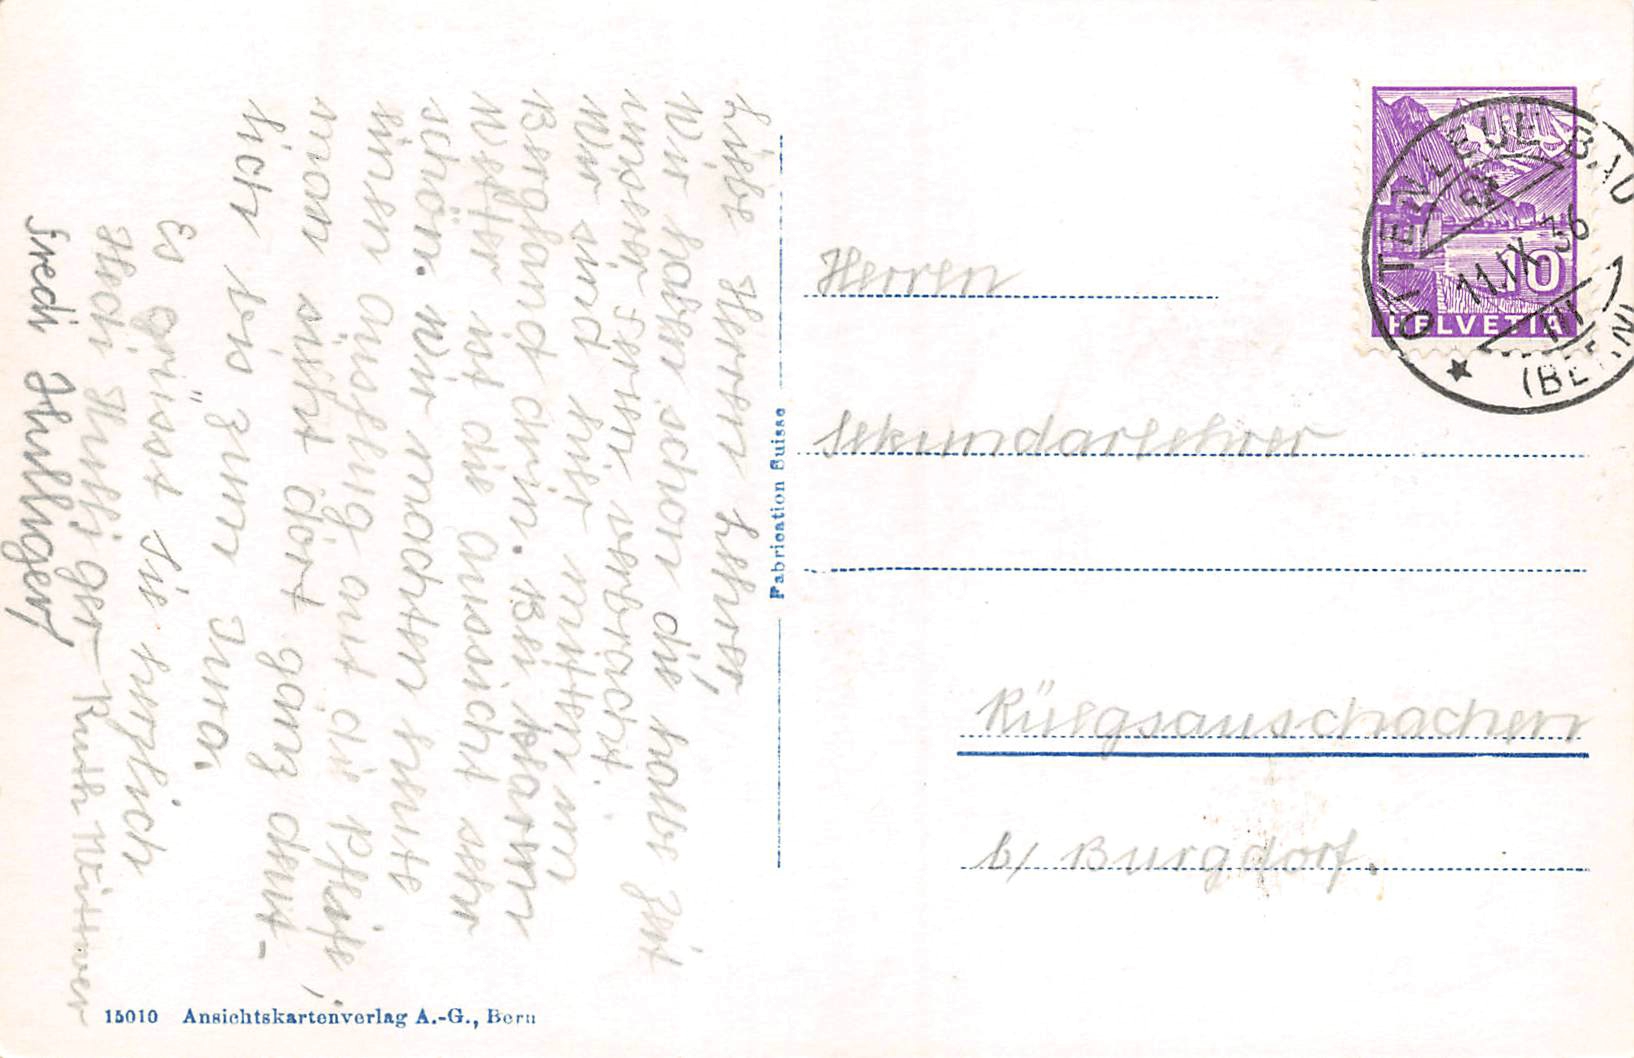 Liebe Herren Lehrer,
Wir haben schon die halbe Zeit
unserer Ferien verbracht.
Wir sind hier mitten im
Bergland drin. Bei klarem
Wetter ist die Aussicht sehr
schön. Wir machten heute
einen Ausflug auf die Pfeife,
man sieht dort ganz deut-
lich bis zum Jura.
Es grüsst Sie herzlich
Hedi Hulliger Ruth Wittwer
Fredi Hulliger
15010 Ansichtskartenverlag A.-G., Bern
Fabrication Suisse
HELVETIA
10
OTTENLEUE BAD
11.IX.36
(BERN)
Herren
Sekundarlehrer
Rüegsauschachen
b/ Burgdorf.